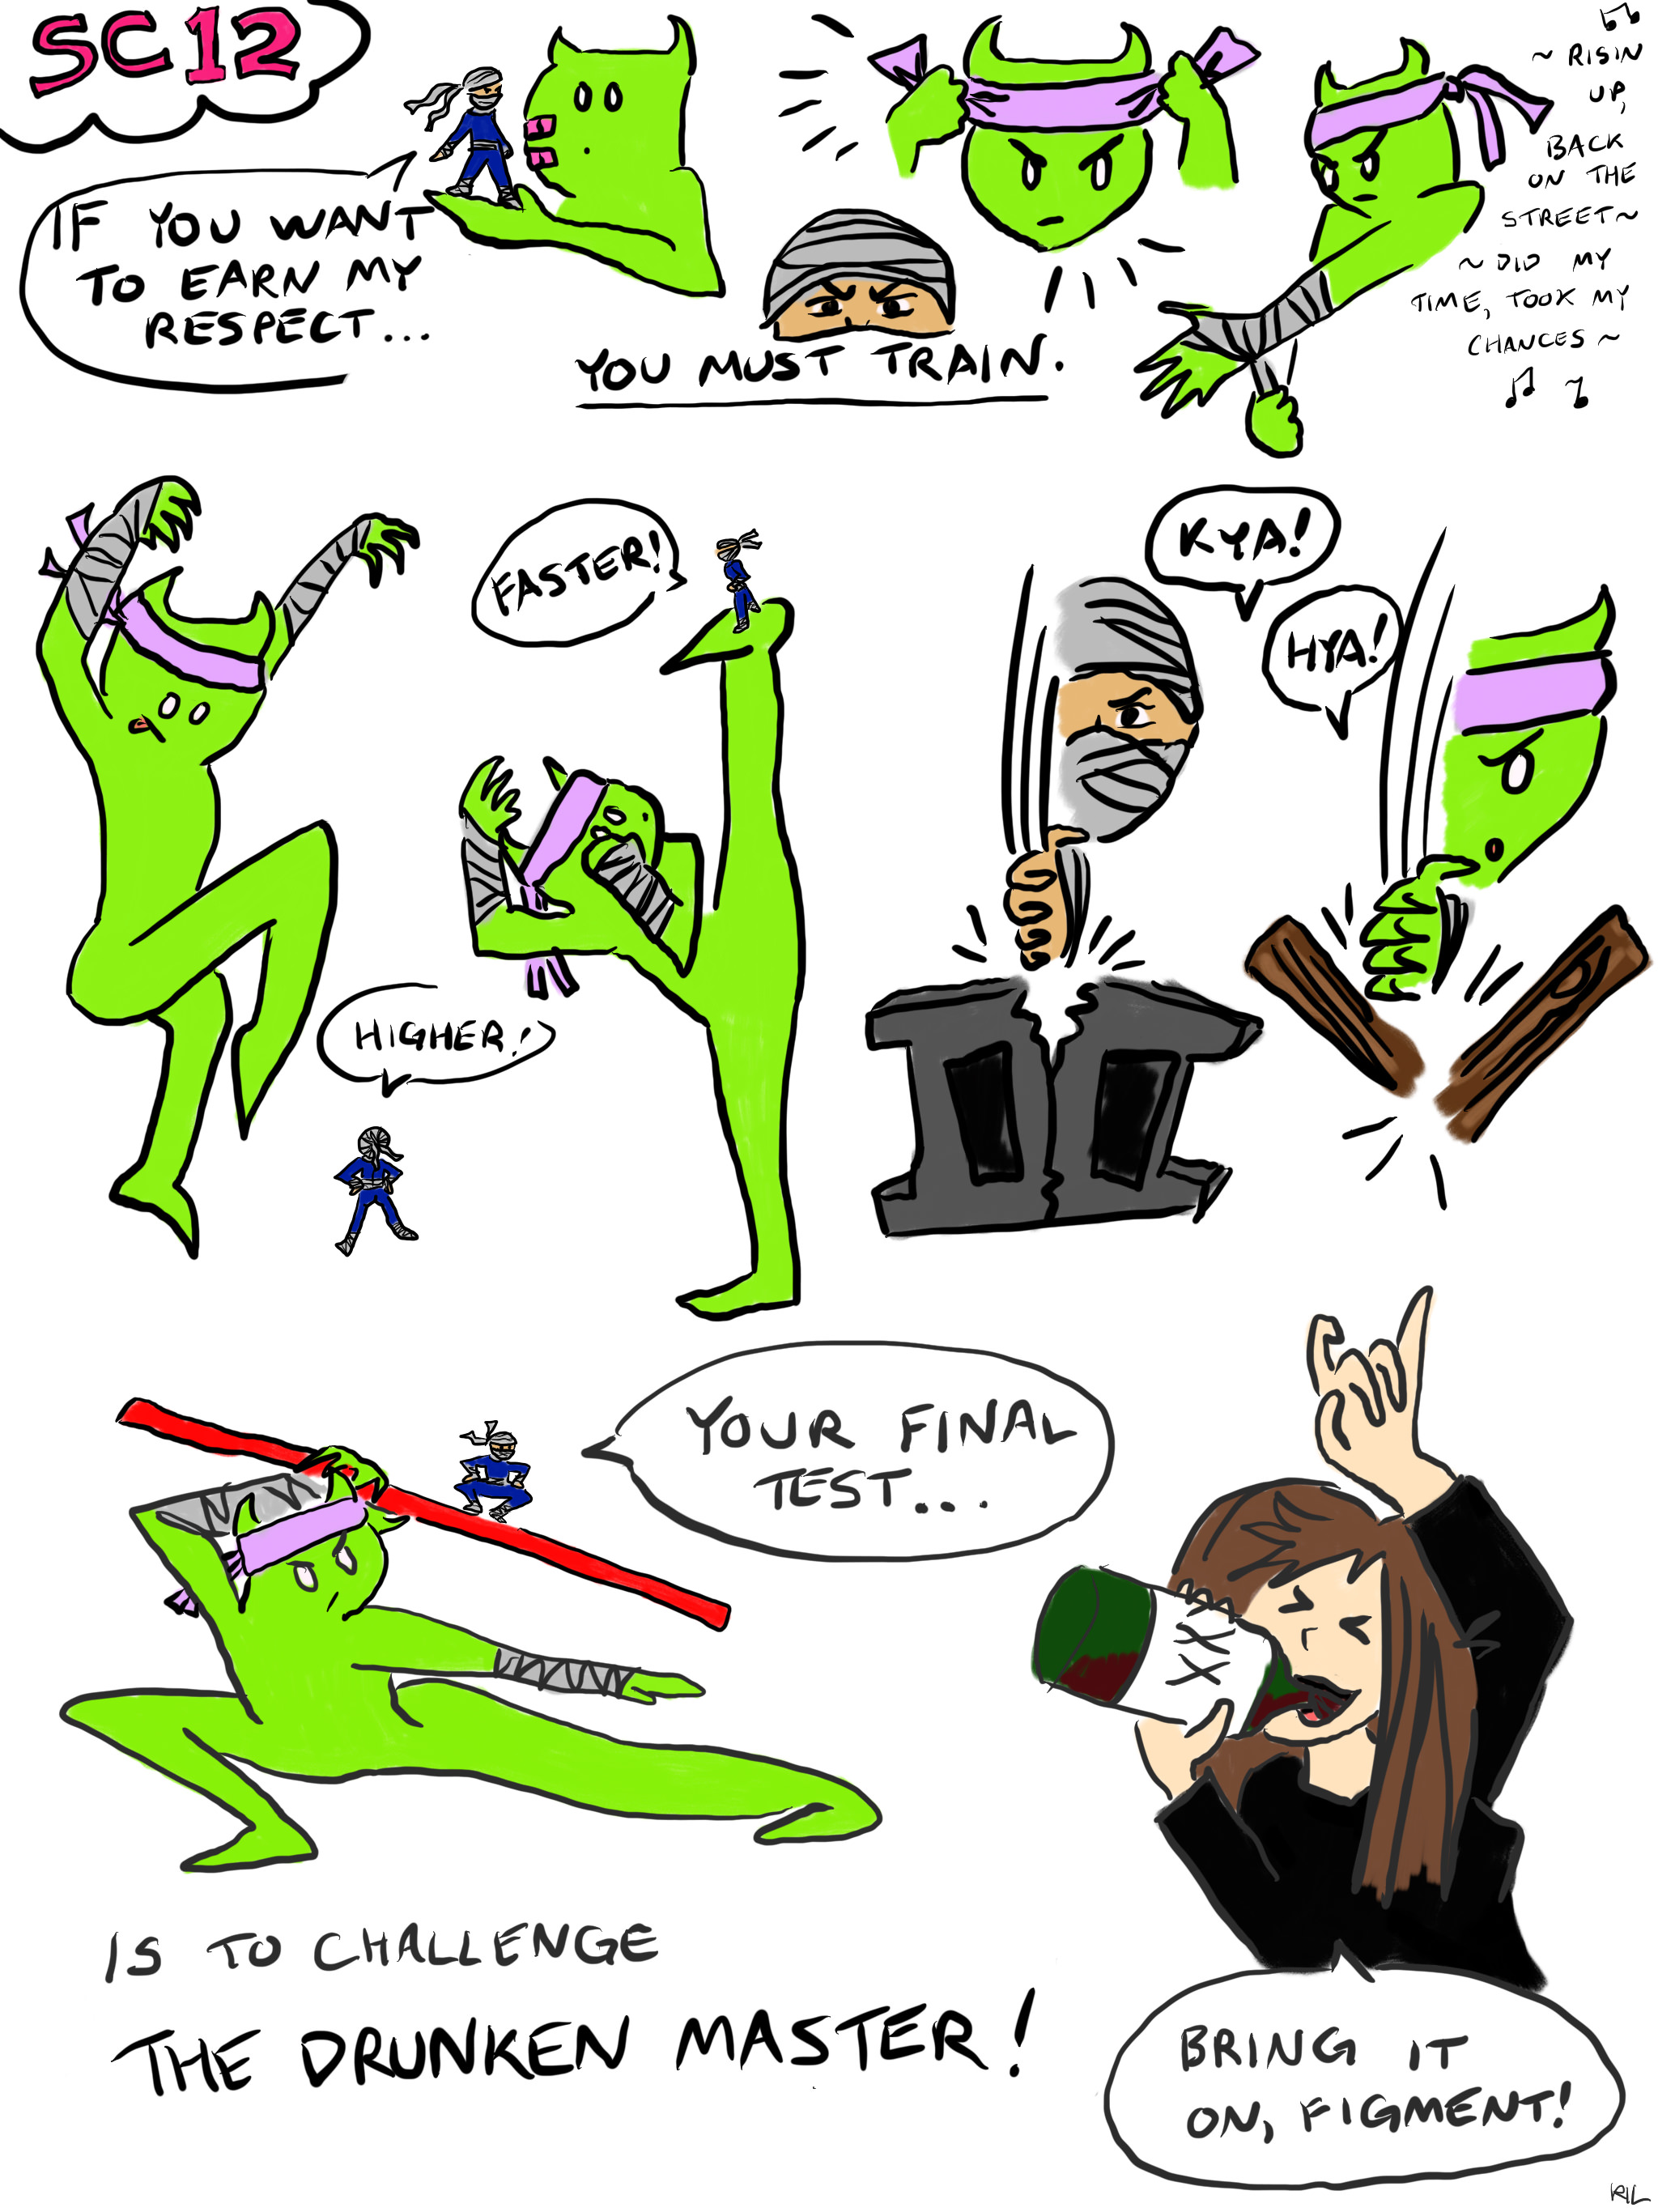 SC12
IF YOU WANT
TO EARN MY
RESPECT...
YOU MUST TRAIN.
~ RISIN
UP,
BACK
ON THE
STREET~
~ DID MY
TIME, TOOK MY
CHANCES ~
FASTER!
HIGHER!
KYA!
HYA!
YOUR FINAL
TEST...
XX
XX
IS TO CHALLENGE
THE DRUNKEN MASTER!
BRING IT
ON, FIGMENT!